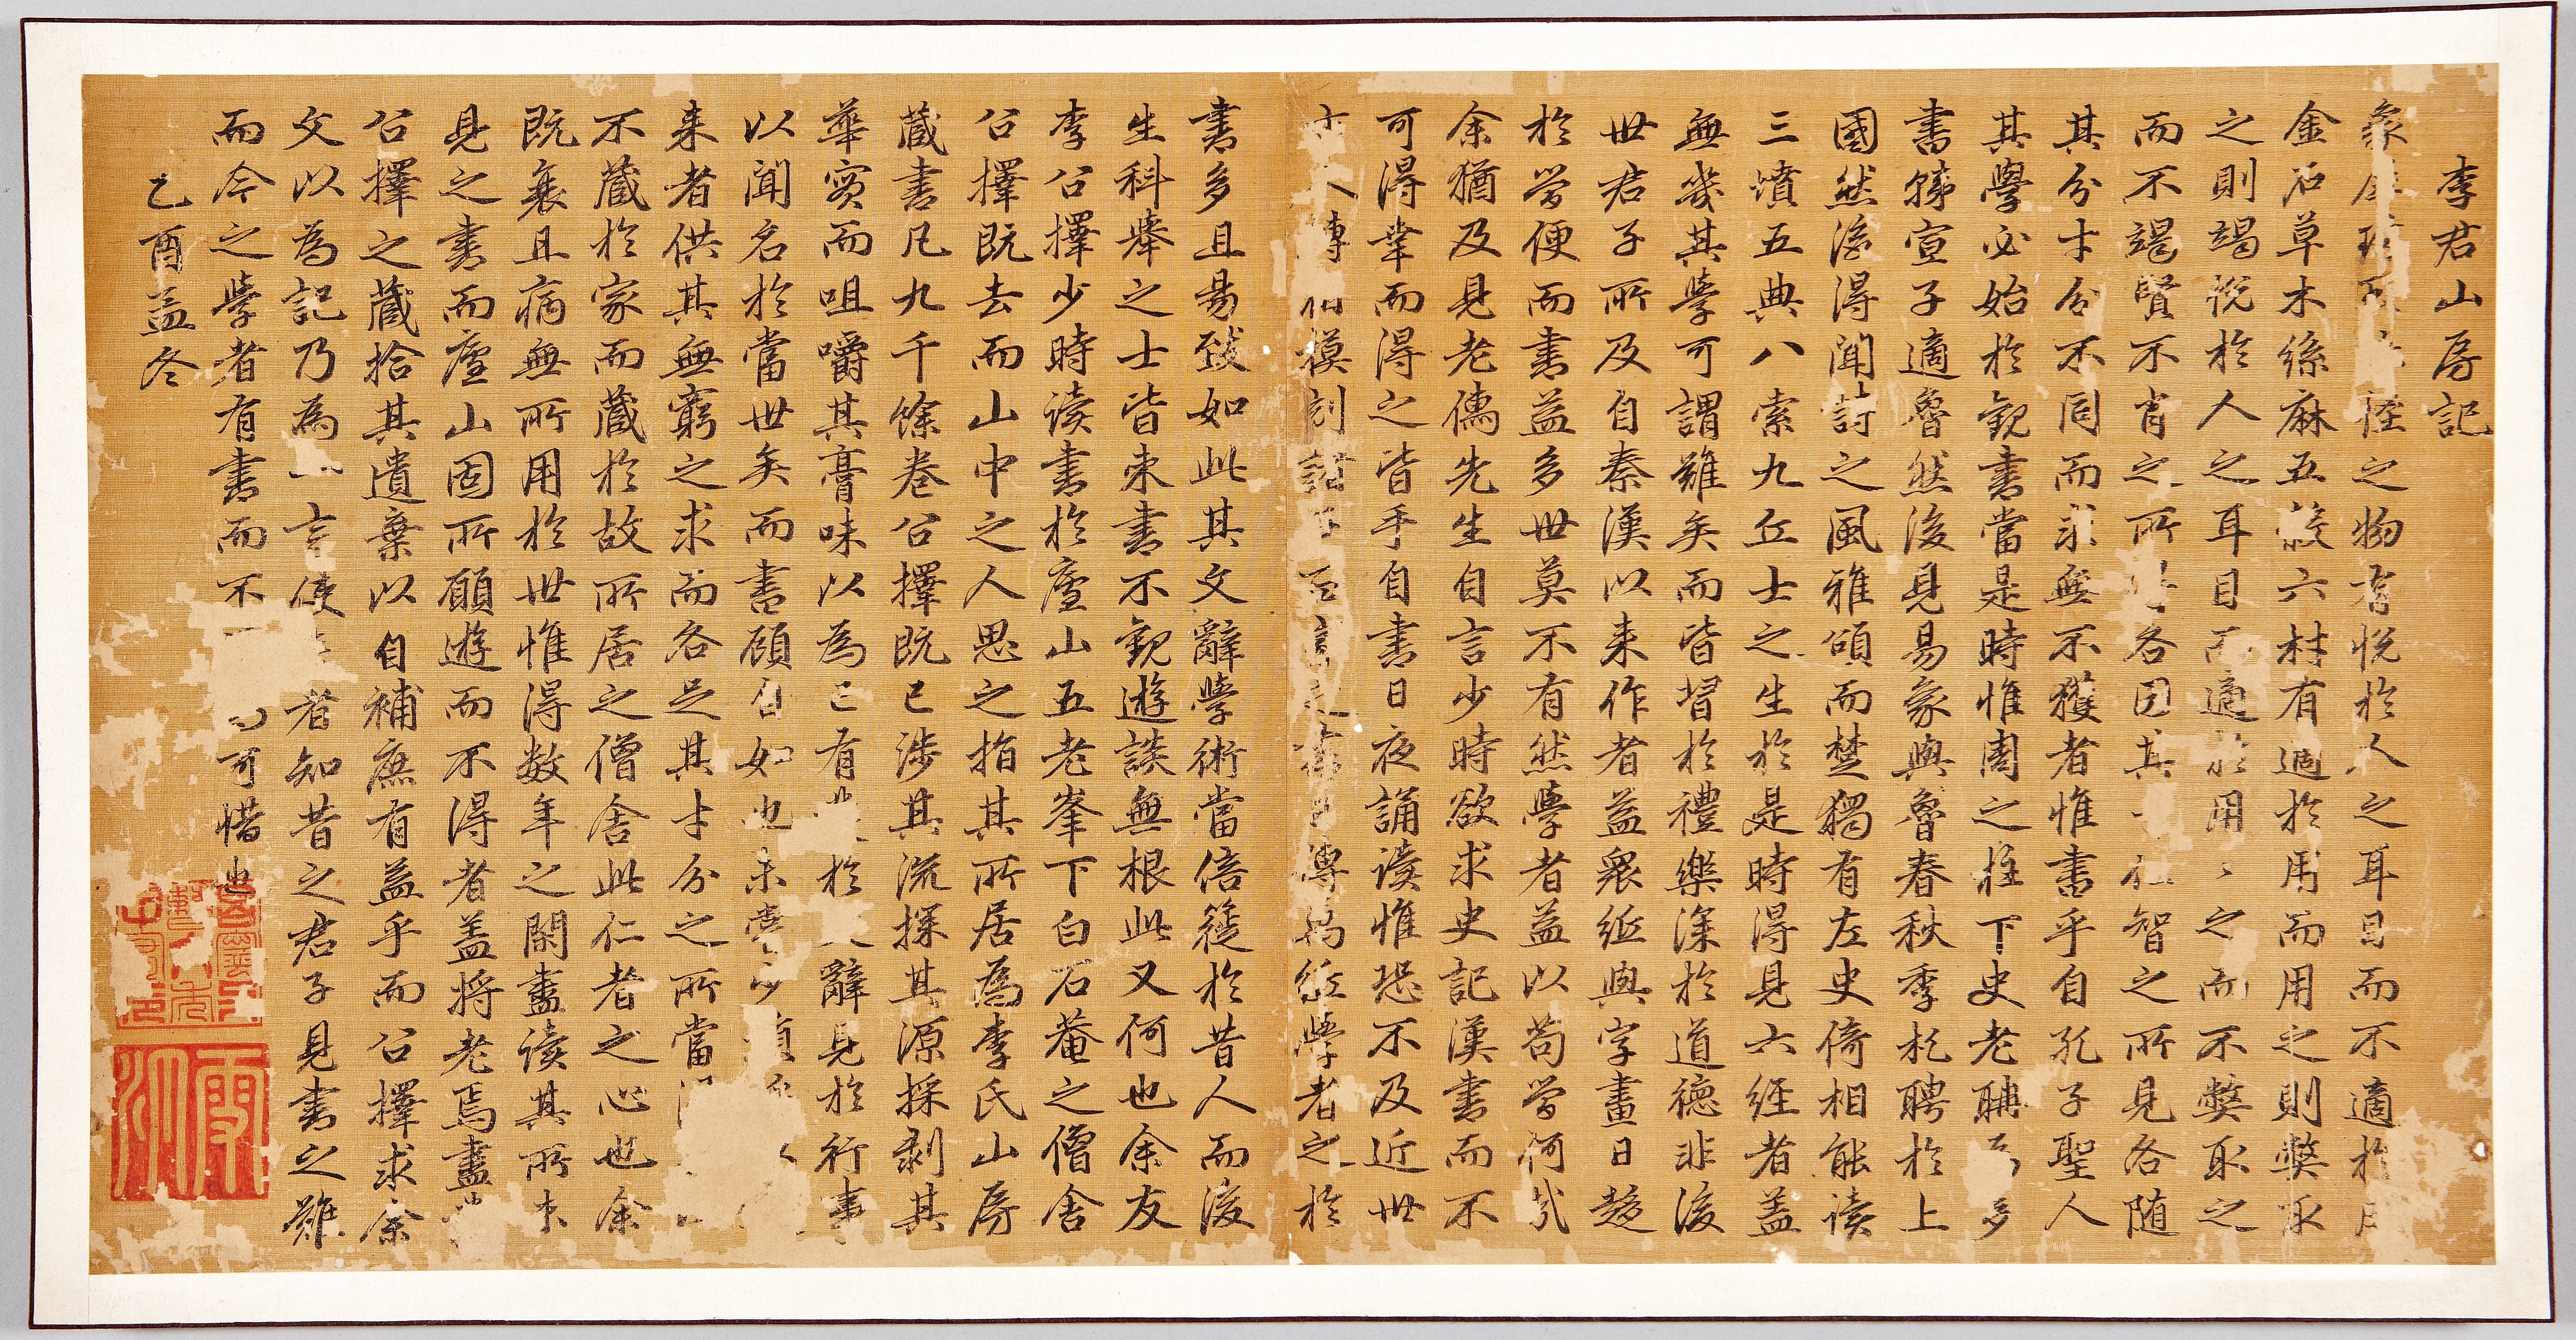 李君山房記
象之物有悅於人之耳目而不適於用
金石草木絲麻五穀六材有適於用而用之則弊取
之則竭悅於人之耳目而適於用用之而不弊取之
而不竭賢不肖之所各因其智之所見各随
其分才分不同而求無不獲者惟書乎自孔子聖人
其學必始於觀書當是時惟周之柱下史老聃多
書韓宣子適魯然後見易象與魯春秋季札聘於上
國然後得聞詩之風雅頌而楚獨有左史倚相能读
三墳五典八索九丘士之生於是時得見六經者盖
無幾其學可謂難矣而皆習於禮樂深於道德非後
世君子所及自秦漢以来作者益衆紙與字畫日趍
於萛便而書益多世莫不有然學者益以苟萛何㢤
余猶及見老儒先生自言少時欲求史記漢書而不
可得幸而得之皆手自書日夜誦读惟恐不及近世
人轉相模刻諸百家之書日傳萬紙學者之於
書多且易致如此其文辭學術當倍蓰於昔人而後
生科舉之士皆束書不觀遊談無根此又何也余友
李公擇少時读書於廬山五老峯下白石菴之僧舍
公擇既去而山中之人思之指其所居為李氏山房
藏書凡九千餘卷公擇既已涉其流探其源採剥其
華實而咀嚼其膏味以為己有於辭見於行事
以聞名於當世矣而書顧自如也未甞少
来者供其無窮之求而各足其才分之所當
不藏於家而藏於故所居之僧舍此仁者之心也余
既衰且病無所用於世惟得数年之閑盡读其所未
見之書而廬山固所願遊而不得者盖将老焉盡
公擇之藏拾其遺棄以自補庶有益乎而公擇求余
文以為記乃為一言使者知昔之君子見書之難
而今之學者有書而不可惜也
乙酉孟冬